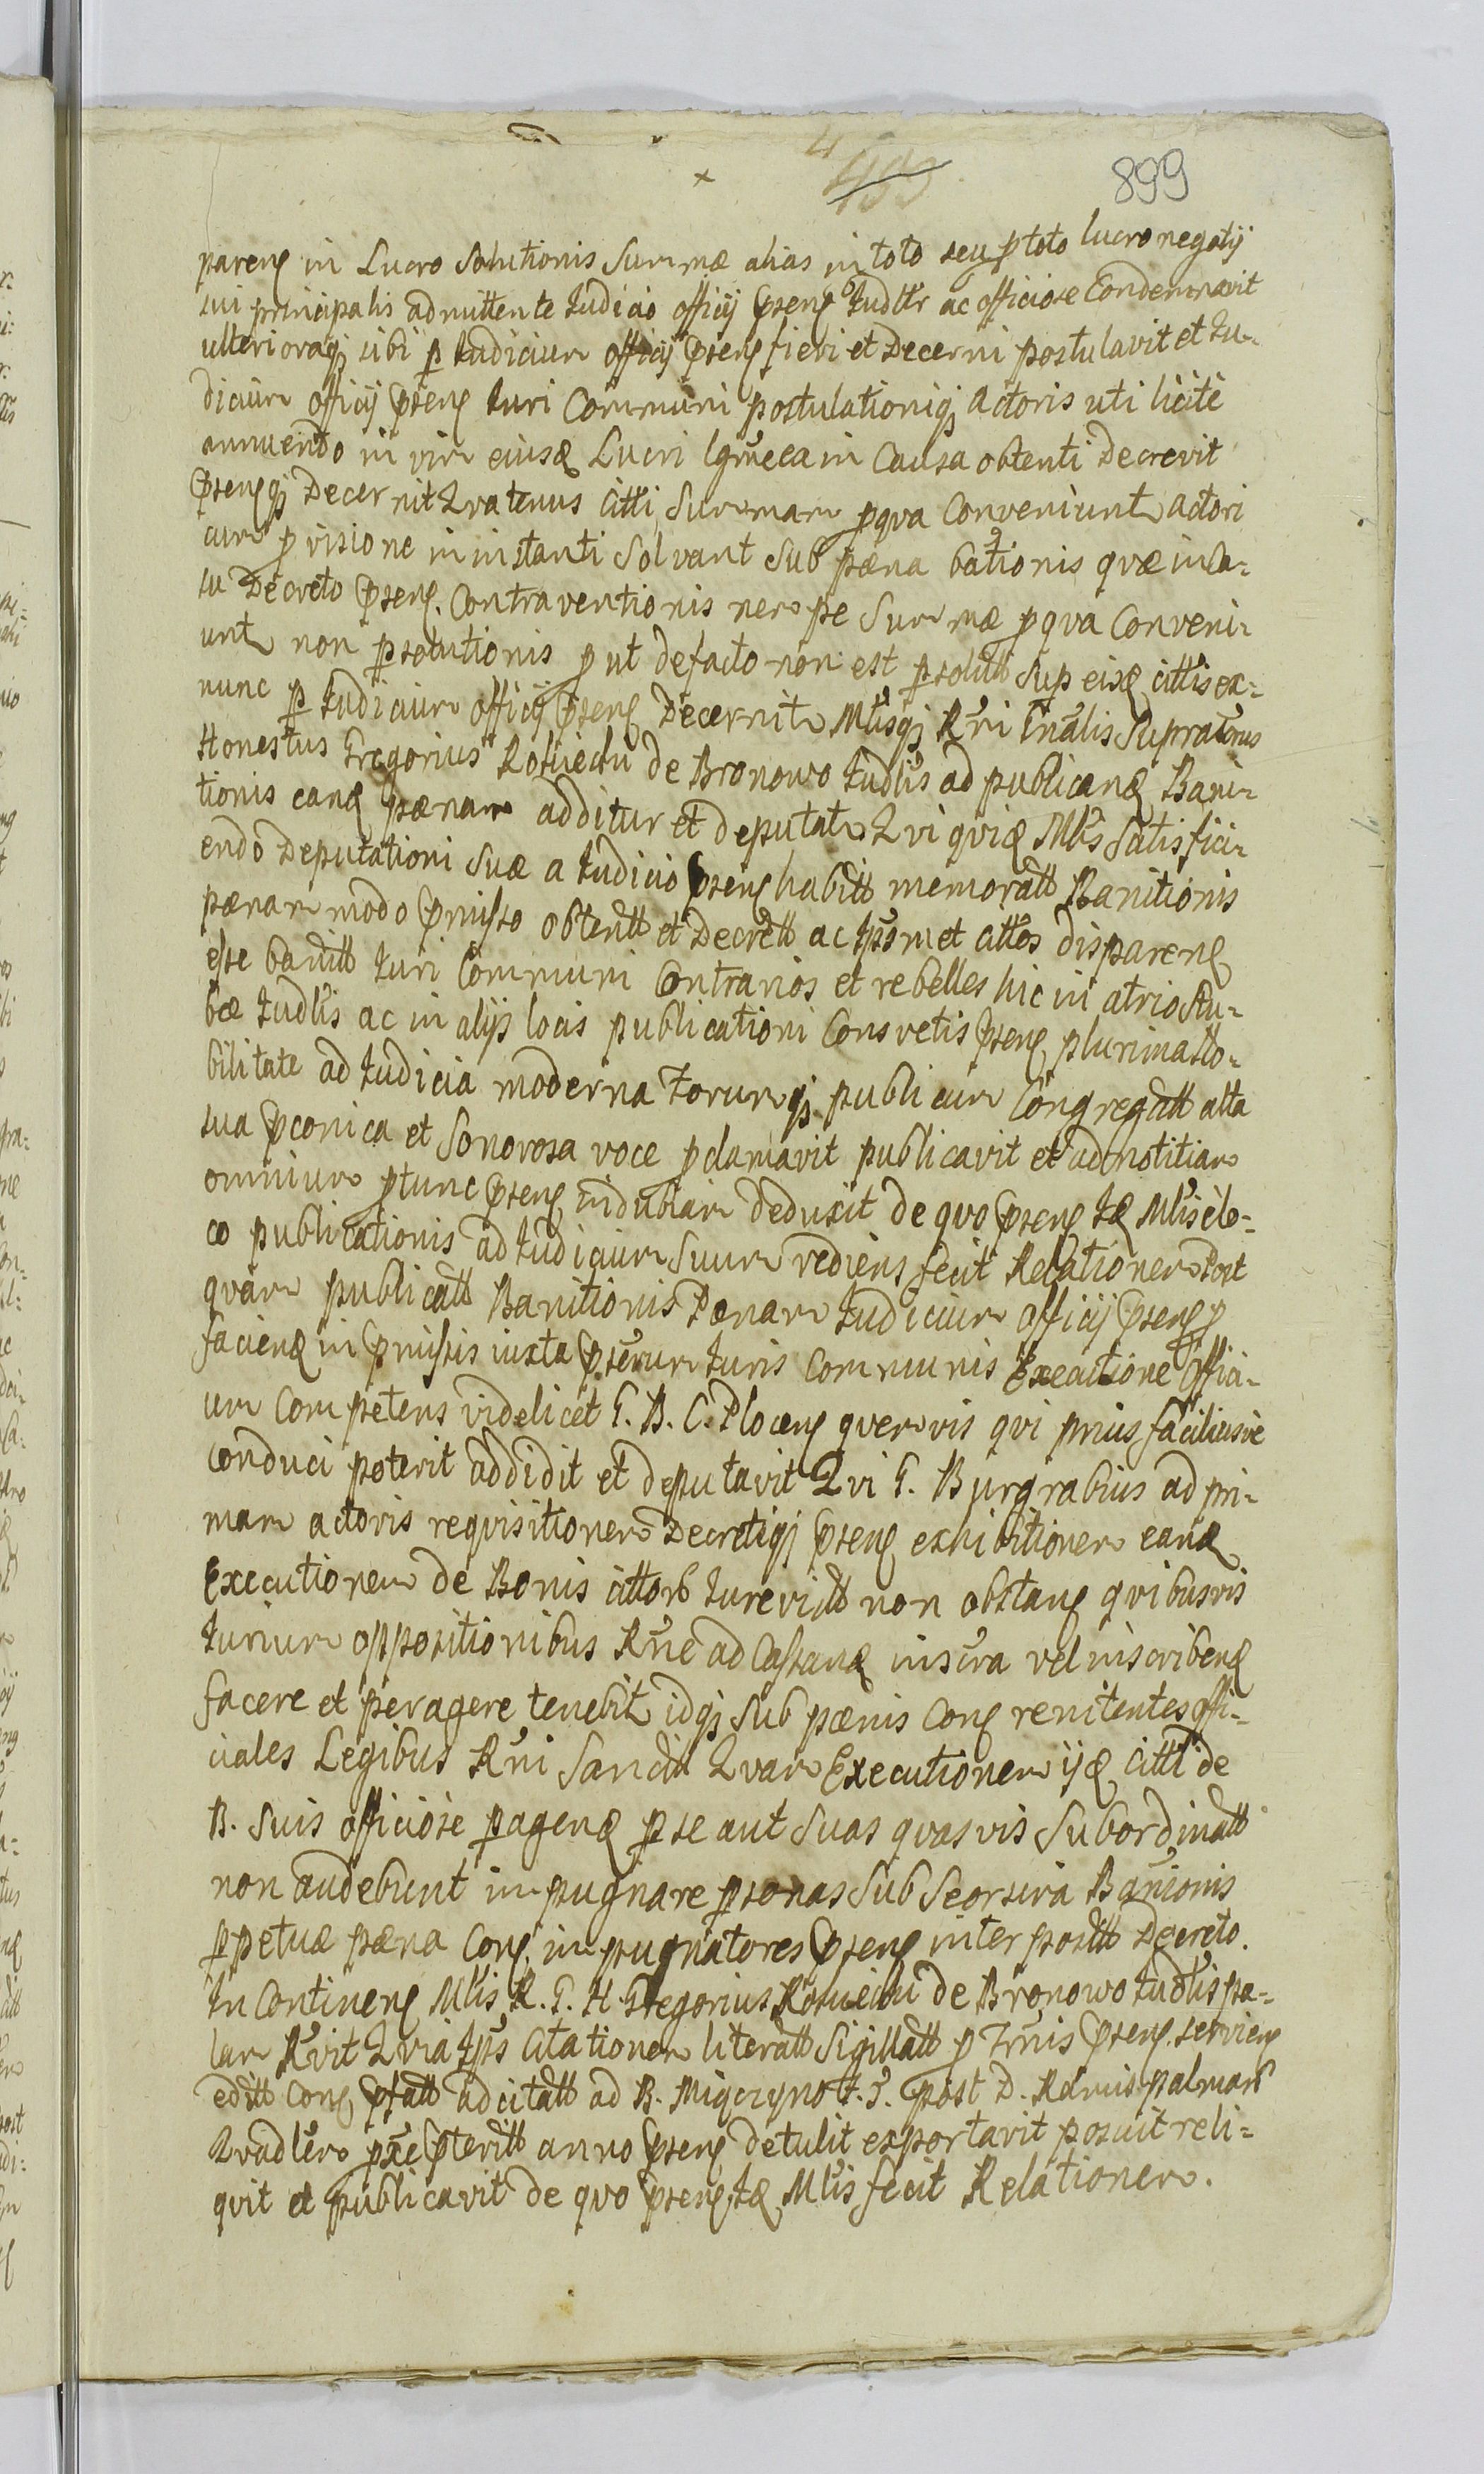 899
parenꝭ in Lucro Solutionis Summæ alias in toto seu ꝓ toto lucro negotij
sui principalis admittente Judicio officij p̃senꝭ Judltr ac officiose Condemnavit
ulterioraqꝫ sibi ꝑ Judicium officij p̃senꝭ fieri et Decerni postulavit et Ju-
dicium officij p̃senꝭ Juri Communi postulationiqꝫ Actoris uti licite
annuendo in vim eiusđ Lucri in Causa obtenti Decrevit
p̃senꝭqꝫ Decernit Qvatenus Citti Summam ꝓ qva Conveniunt Actori
cum ꝓvisione in instanti Solvant Sub pæna bationis qvæ in ca-
su Decreto p̃senꝭ. Contraventionis nempe Summæ ꝓ qva Conveni-
unt non ꝑsolutionis ꝓut de facto non est ꝑsolutt Sup eisđ cittis ex-
nunc ꝑ Judicium officij p̃senꝭ Decernit Mlisqꝫ Rni Gnalis Supratnus
Honestus Gregorius de Bronowo Judlis ad publicanđ Bani-
tionis eanđ pænam additur et deputat Qvi qviđ Mlis Satisfici-
endo Deputationi Suæ a Judicio p̃senꝭ habitt memoratt Banitionis
pænam modo p̃misso obtentt et Decrett ac Jpsmet cittos disparenꝭ
esse banitt Juri Communi Contrarios et rebelles hic in atrio Stu-
bæ Judlis ac in alijs locis publicationi Consvetis p̃senꝭ plurima No-
bilitate ad Judicia moderna Forumqꝫ publicum Congregatt alta
sua p̃conica et Sonorosa voce ꝓclamavit publicavit et ad notitiam
omnium ꝓtunc p̃senꝭ indubiam deduxit de qvo p̃senꝭ Jđ Mlis e lo-
co publicationis ad Judicium Suum rediens fecit Relationem Post
qvam publicatt Banitionis Pænam Judicium officij p̃senꝭ ꝓ
facienđ in p̃missis iuxta p̃scrum Juris Communis Executione Offici-
um Competens videlicet G. B. C. Plocenꝭ qvemvis qvi prius faciliusve
conduci poterit addidit et deputavit Qvi G. Burgrabius ad pri-
mam actoris reqvisitionem Decretiqꝫ p̃senꝭ exhibitionem eanđ
Executionem de Bonis cittorb Jurevictt non obstanꝭ qvibusvis
Jurium oppositionibus Rne ad Cassanđ inscra vel inscribenđ
facere et peragere tenebit idqꝫ Sub pænis Conꝭ renitentes offi-
ciales Legibus Rni Sancitt Qvam Executionem ijđ Citti de
B. Suis officiose ꝑagenđ ꝑ se aut Suas qvasvis Subordinatt
non audebunt impugnare ꝑsonas Sub Seorsiva Banionis
ꝑpetuæ pæna Conꝭ impugnatores p̃senꝭ interpositt Decreto.
In Continenꝭ Mlis R. G. H. Gregorius de Bronowo Judlis pa-
lam Rvit Qvia Jps Citationem literatt Sigillatt ꝓ Trnis p̃senꝭ. servienꝭ
editt Conꝭ p̃fatt ad citatt ad B. Miączyno F. 3. post D. Rdmis palmarꝭ
p̃teritt anno p̃senꝭ detulit exportavit posuit reli-
qvit et publicavit de qvo p̃senꝭ Jđ Mlis fecit Relationem.